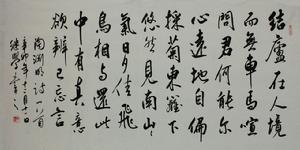 結廬在人境
而無車馬喧
問君何能尔
心遠地自偏
採菊東籬下
悠然見南山々
氣日夕佳飛
鳥相與還此
中有真意
欲辨已忘言
陶淵明詩一首